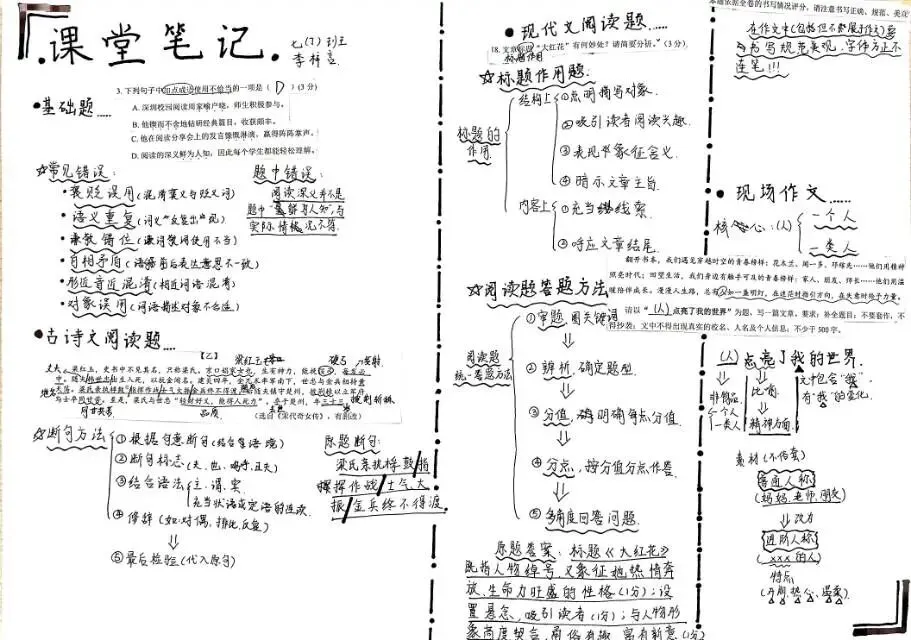 课堂笔记.
七(7)班
• 基础题......
3. 下列句子中加点成语使用不恰当的一项是( D )(3分)
A. 深圳校园阅读周家喻户晓,师生积极参与。
B. 他锲而不舍地钻研经典篇目,收获颇丰。
C. 他在阅读分享会上的发言慷慨淋漓,赢得阵阵掌声。
D. 阅读的深义鲜为人知,因此每个学生都能轻松理解。
☆常见错误:
• 褒贬误用(混淆褒义与贬义词)
• 语义重复(词义"反复出"现)
• 谦敬错位(谦词敬词使用不当)
• 自相矛盾(语境前后表达意思不一致)
• 形近音近混淆(相近词语混淆)
• 对象误用(词语描述对象不合适)
题中错误:
阅读深义并不是
题中"鲜为人知",与
实际情况不符.
• 古诗文阅读题....
【乙】
梁红玉
品质
(选自《宋代奇女传》,有删改)
☆断句方法
①根据句意断句(结合语境)
②断句标志(夫、也、呜呼、且夫)
③结合语法
主.谓.宾
充当状语或定语的连读
④修辞(如:对偶,排比,反复)
⑤最后检验(代入原句)
原题断句:
梁氏亲执桴鼓/指
挥作战/士气大
振/金兵终不得渡.
• 现代文阅读题......
18. 文章标题"大红花"有何妙处?请简要分析。(3分)
标题作用
☆标题作用题.
标题的
作用
结构上
①点明描写对象.
②吸引读者阅读兴趣.
③表现象征含义.
④暗示文章主旨.
内容上
①充当线索
②呼应文章结尾.
☆阅读题答题方法
阅读题
统一答题方法
①审题,圈关键词
②辨析,确定题型.
③分值,明确每点分值.
④分点,按分值分点作答.
⑤多角度回答问题.
原题答案:标题《大红花》
既指人物绰号,又象征她热情奔
放、生命力旺盛的性格(1分);设
置悬念,吸引读者(1分);与人物形
在作文中(包括但不局限于作文)要
书写规范美观,字体方正不
连笔!!!
• 现场作文......
核心:(人)
一个人
一类人
翻开书本,我们遇见穿越时空的青春榜样:花木兰、闻一多、邓稼先……他们用精神
照亮时代;回望生活,我们身边有触手可及的青春榜样:家人、朋友、师长……他们用温
暖陪伴成长。漫漫人生路,总有人如一盏明灯,在迷茫时指引方向,在失意时给予力量。
请以"(人)点亮了我的世界"为题,写一篇文章。要求:补全题目;不要套作,不
得抄袭;文中不得出现真实的校名、人名及个人信息;不少于500字。
(人)点亮了我的世界.
一个人
一类人
比喻
精神方面.
文中包含"我",
有"我"的变化.
素材(不俗套)
普通人称
(妈妈,老师,朋友)
改为
进阶人称
(xxx的人)
特点